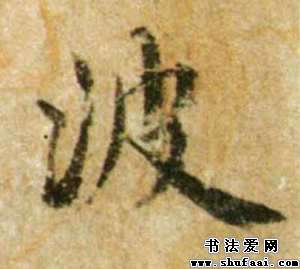 波
书法爱网
www.shufaai.com